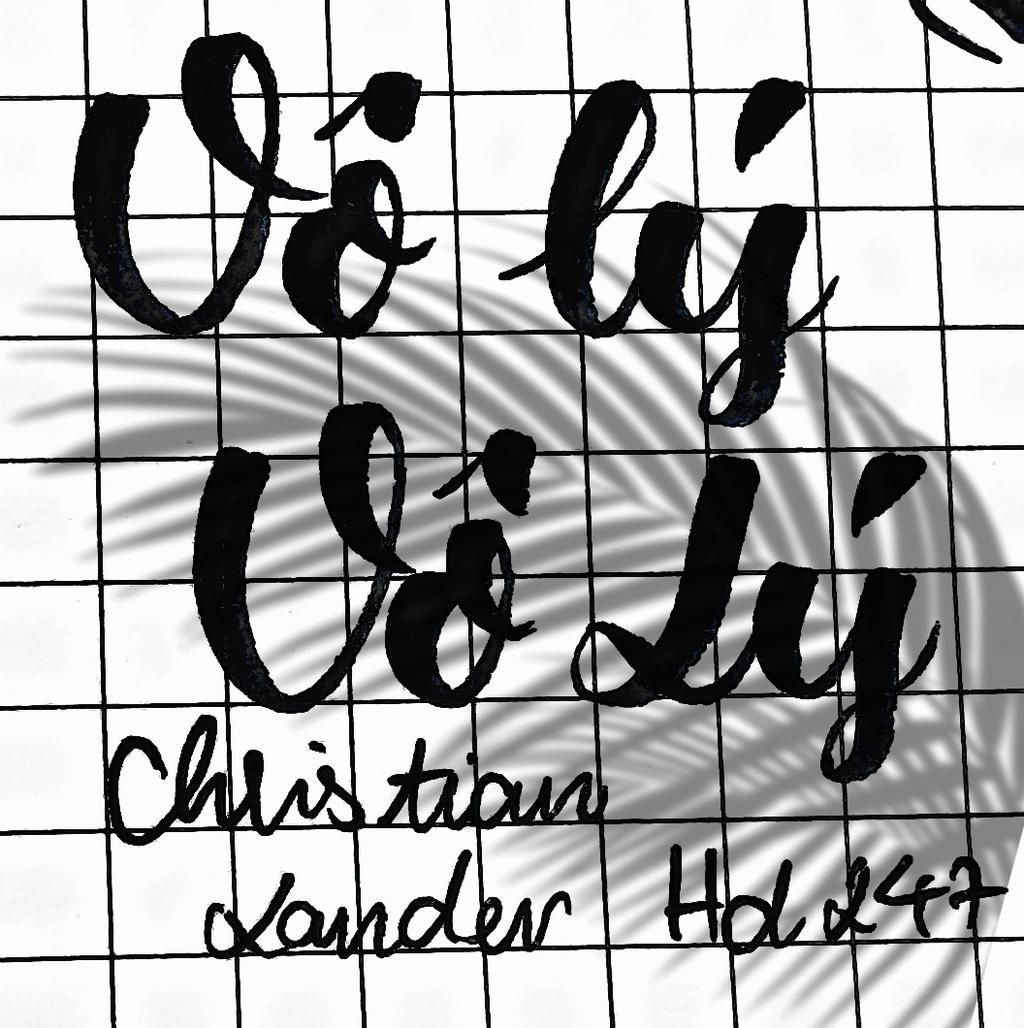 Vô lý
Vô Lý
Christian
Lander Hd 247